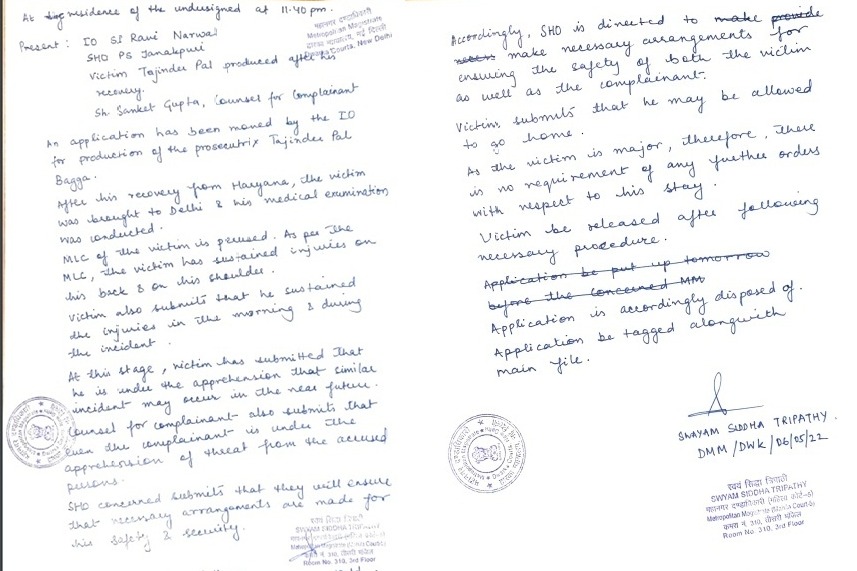 At residence of the undersigned at 11.40 pm.
Present : IO SI Ravi Narwal
SHO PS Janakpuri
Victim Tajinder Pal produced after his
recovery.
Sh. Sanket Gupta, Counsel for Complainant
Metropolitan Magistrate
Dwarka Courts, New Delhi
An application has been moved by the IO
for production of the prosecutrix Tajinder Pal
Bagga.
After his recovery from Haryana, the victim
was brought to Delhi & his medical examination
was conducted.
MLC of the victim is perused. As per the
MLC, the victim has sustained injuries on
his back & on his shoulder.
Victim also submits that he sustained
the injuries in the morning & during
the incident.
At this stage, victim has submitted that
he is under the apprehension that similar
incident may occur in the near future.
Counsel for complainant also submits that
even the complainant is under the
apprehension of threat from the accused
persons.
SHO concerned submits that they will ensure
that necessary arrangements are made for
his safety & security.
स्वयं सिद्धा त्रिपाठी
SWYAM SIDDHA TRIPATHY
Room No. 310, 3rd Floor
Accordingly, SHO is directed to make provide
make necessary arrangements for
ensuring the safety of both the victim
as well as the complainant.
Victim submits that he may be allowed
to go home.
As the victim is major, therefore, there
is no requirement of any further orders
with respect to his stay.
Victim be released after following
necessary procedure.
Application be put up tomorrow
before the concerned MM
Application is accordingly disposed of.
Application be tagged alongwith
main file.
SWAYAM SIDDHA TRIPATHY
DMM/DWK/06/05/22
स्वयं सिद्धा त्रिपाठी
SWYAM SIDDHA TRIPATHY
महानगर दण्डाधिकारी (महिला कोर्ट-6)
Metropolitan Magistrate (Mahila Court-6)
कमरा नं. 310, तीसरी मंजिल
Room No. 310, 3rd Floor